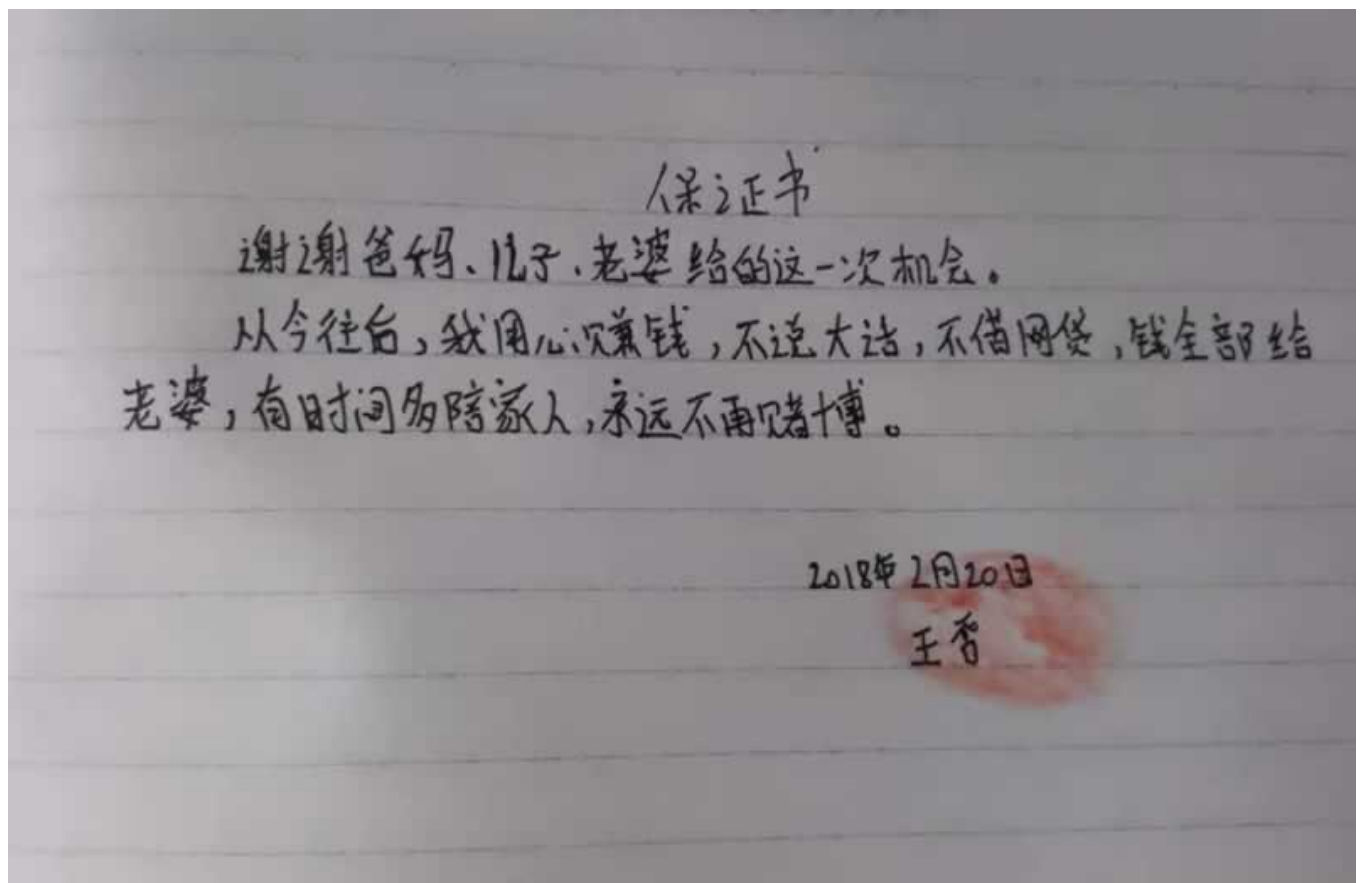 保证书
谢谢爸妈、儿子、老婆给的这一次机会。
从今往后,我用心赚钱,不说大话,不借网贷,钱全部给
老婆,有时间多陪家人,永远不再赌博。
2018年2月20日
王香